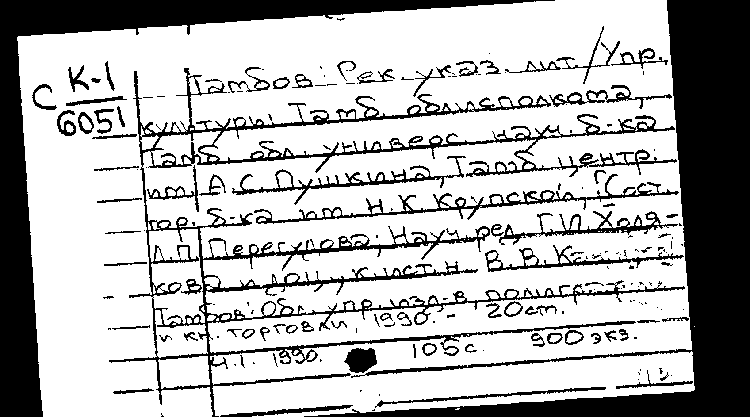 С К-1
6051
Тамбов: Рек. указ. лит. / Упр.
культуры Тамб. облисполкома,
Тамб. обл. универс. науч. б-ка
им. А.С. Пушкина, Тамб. центр.
гор. б-ка им. Н.К. Крупской; [Сост.
Л.П. Перегудова; Науч. ред. Г.П. Холя-
кова и доц., к. ист. н. В.В.
Тамбов: Обл. упр. изд-в, полиграфии
и кн. торговли, 1990. - 20 cm.
Ч.1. 1990. 105 с. 900 экз.